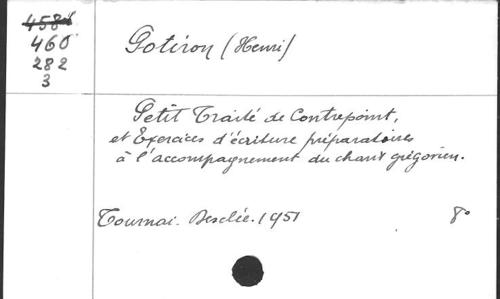 458
460
282
3
Potiron (Henri)
Petit Traité de Contrepoint,
et Exercices d'écriture préparatoires
à l'accompagnement du chant grégorien.
Tournai. Desclée. 1951 8°